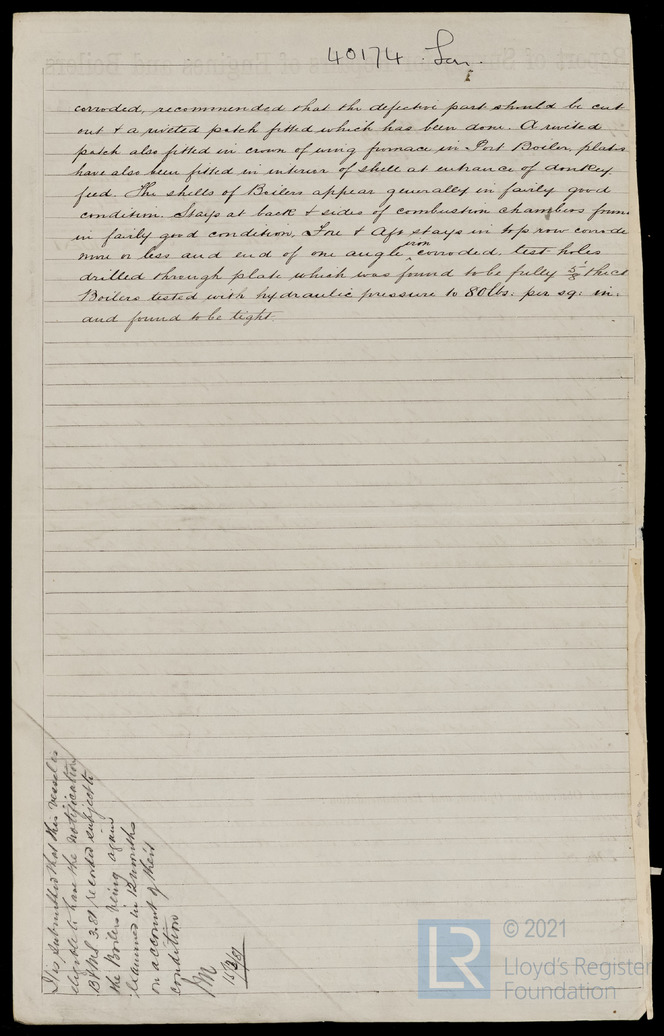 40174 Lon.
corroded, recommended that the defective part should be cut
out & a riveted patch fitted which has been done. A riveted
patch also fitted in crown of wing furnace in Port Boiler, plates
have also been fitted in interior of shell at entrance of donkey
feed. The shells of Boilers appear generally in fairly good
condition. Stays at back & sides of combustion chambers foun
in fairly good condition, Fore & Aft stays in top row corrode
more or less and end of one angle iron corroded, test holes
drilled through plate which was found to be fully 5/8 thick
Boilers tested with hydraulic pressure to 80 lbs: per sq: in:
and found to be tight.
It is submitted that this vessel is
eligible to have the notification
3.81 recorded subject to
the Boilers being again
examined in 12 months
on account of their
condition
© 2021
LR
Lloyd's Register
Foundation